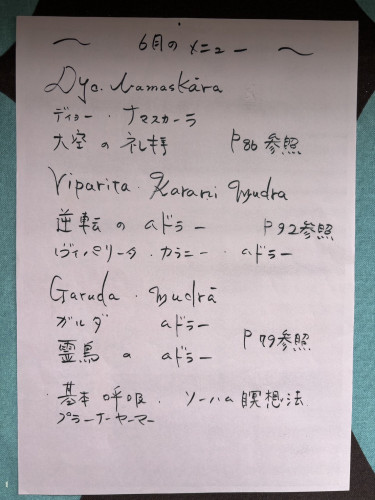 〜 6月のメニュー 〜
Dyo. Namaskāra
ディヨー・ナマスカーラ
大空の礼拝 P86参照
Viparita・Karani Mudra
逆転のムドラー P92参照
ヴィパリータ・カラニー・ムドラー
Garuda・mudrā
ガルダ ムドラー
霊鳥のムドラー P79参照
・基本呼吸・ソーハム瞑想法
プラーナーヤーマー